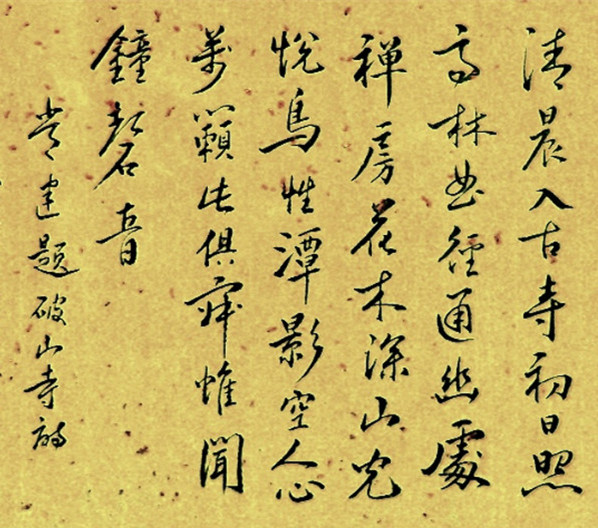 清晨入古寺初日照
高林曲徑通幽處
禪房花木深山光
悅鳥性潭影空人心
萬籟此俱寂惟聞
鐘磬音
常建題破山寺